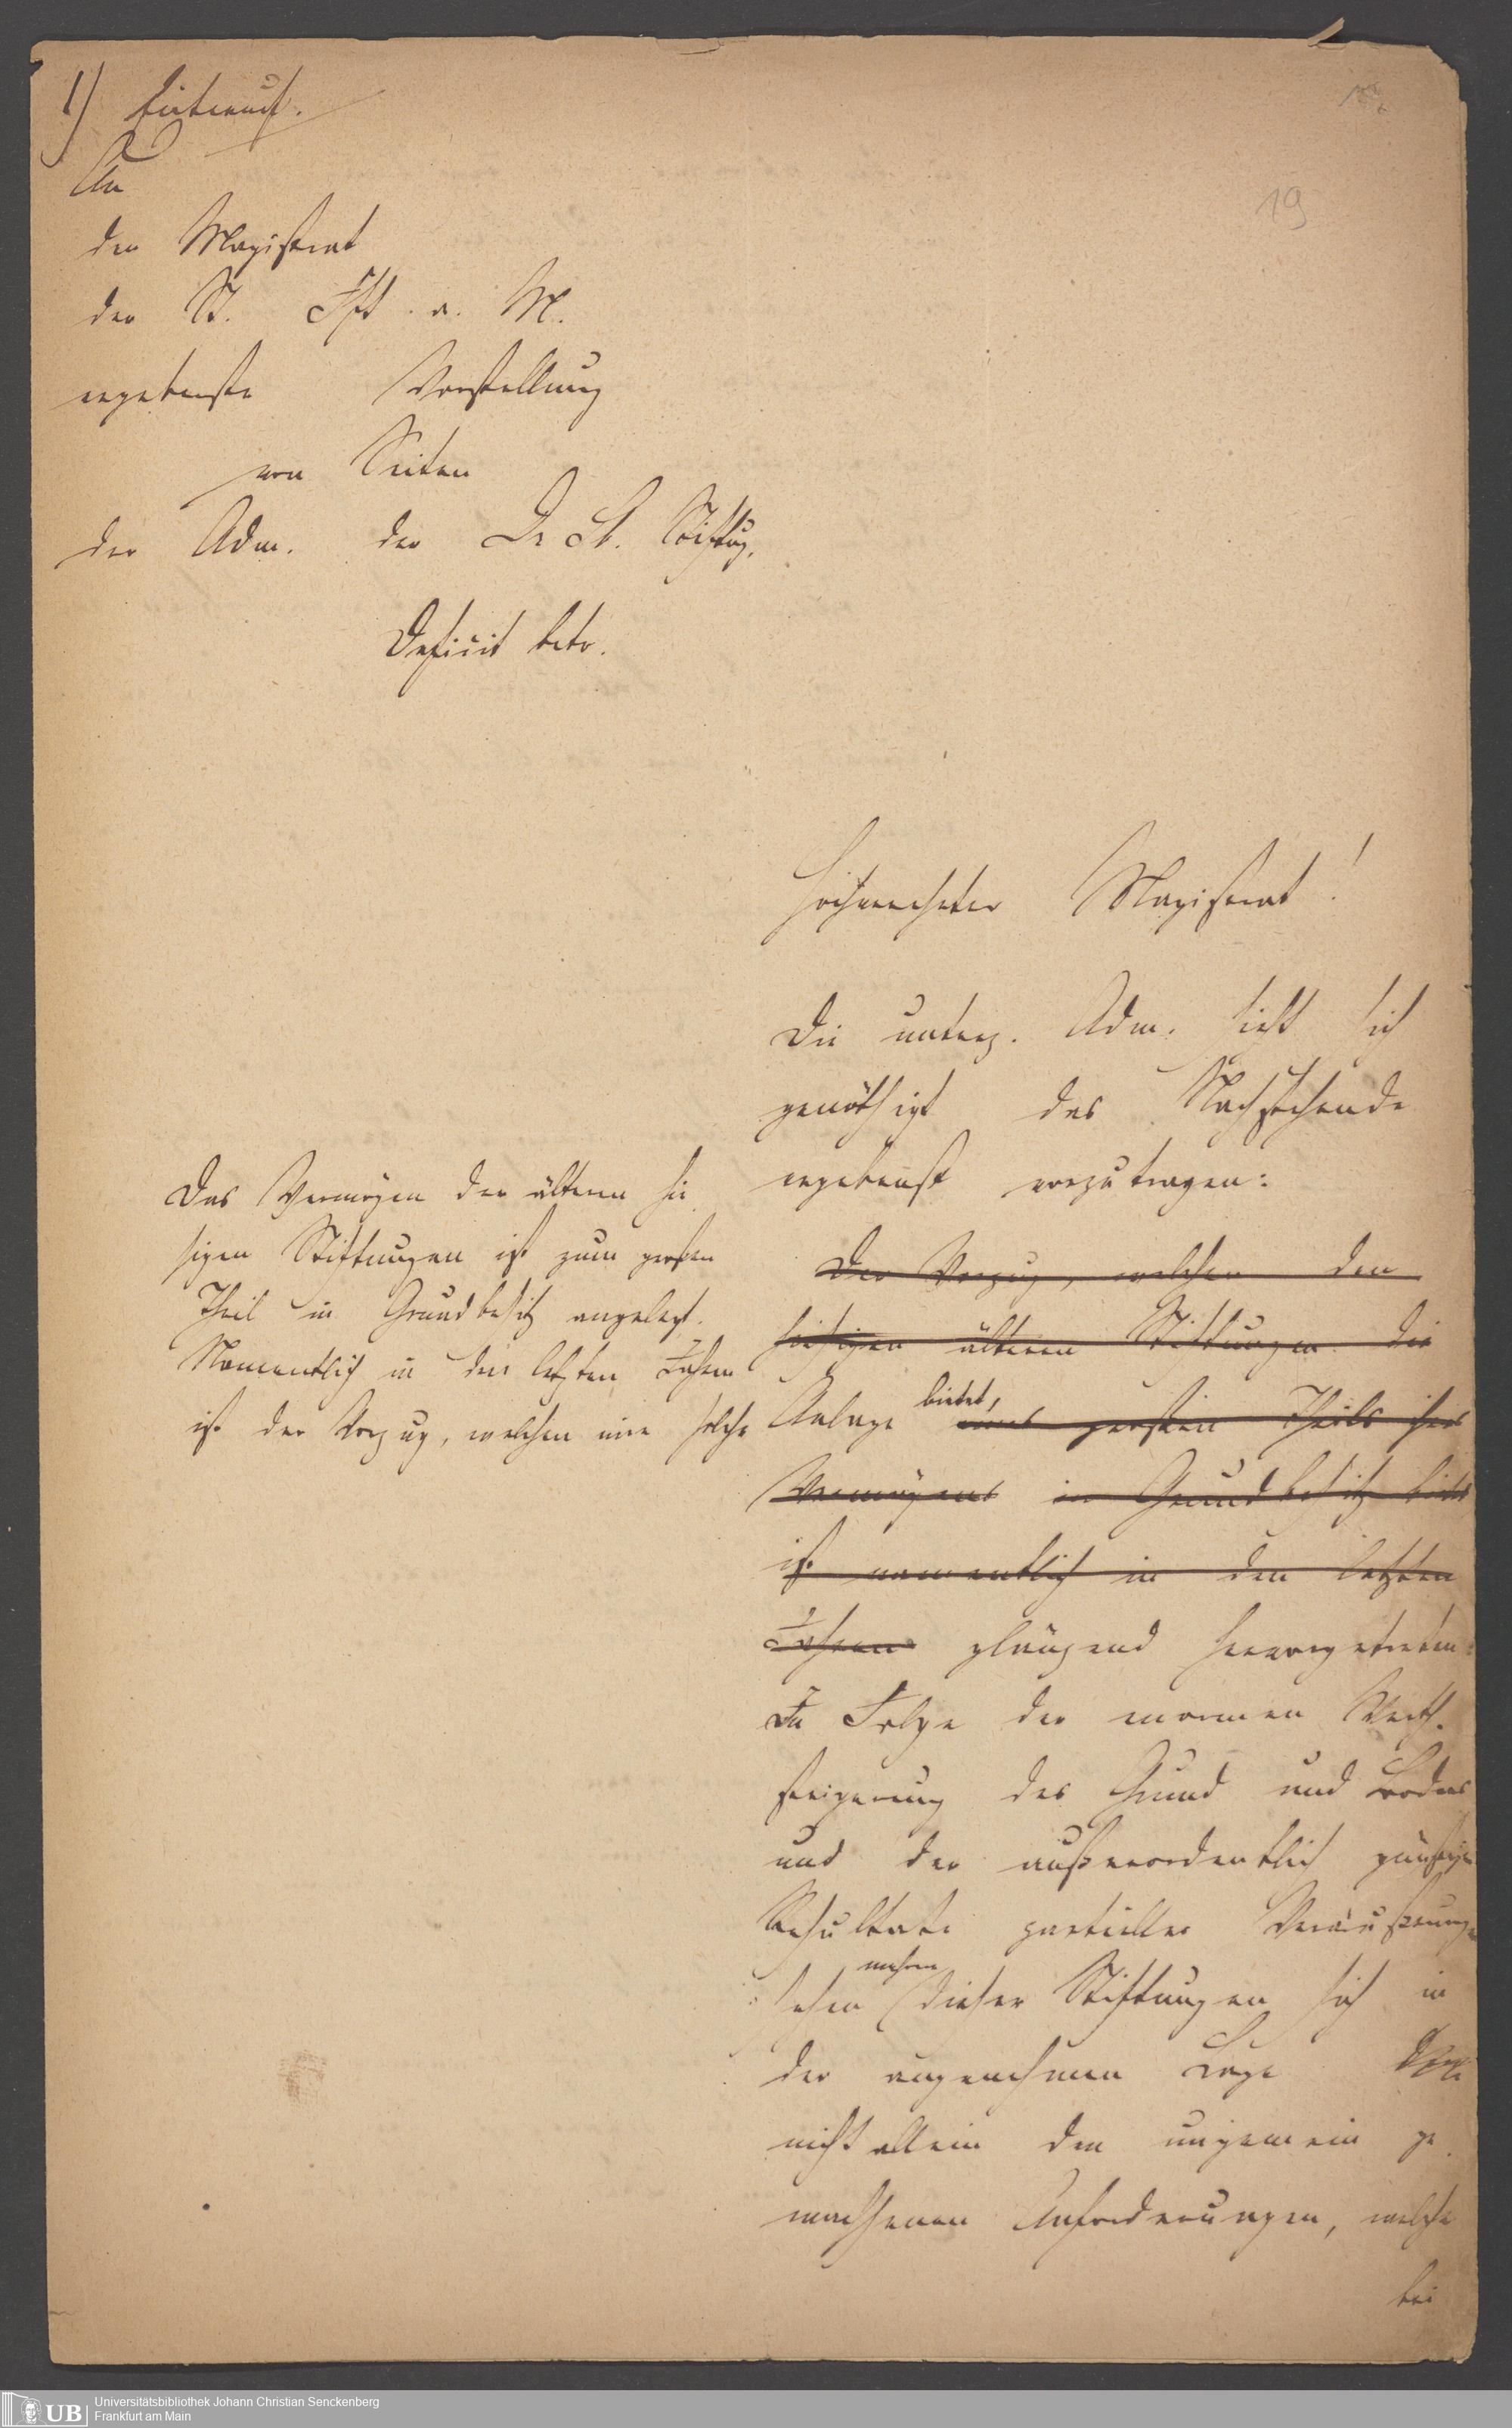 1) Entwurf.
An
den Magistrat
der St. Fft. a. M.
ergebenste Vorstellung
von Seiten
der Adm. der Dr. S. Stiftug.
Deficit betr.
19
Hochverehrter Magistrat!
Die unterz. Adm. sieht sich
genöthigt das Nachstehende
ergebenst vorzutragen:
Das Vermögen der älteren hie
sigen Stiftungen ist zum großen
Theil in Grundbesitz angelegt.
Namentlich in den letzten Jahren
ist der Vorzug, welchen eine solche
Der Vorzug, welchen den
hiesigen älteren Stiftungen die
Anlage bietet, eines großen Theils ihres
Vermögens in Grundbesitz bietet
ist namentlich in den letzten
Jahren glänzend hervorgetreten:
In Folge der enormen Werth-
steigerung des Grund und Bodens
und der außerordentlich günstigen
Resultate partieller Veräußerungen
sehen mehrere dieser Stiftungen sich in
der angenehmen Lage
nicht allein den ungemein ge
wachsenen Anforderungen, welche
bei
Universitätsbibliothek Johann Christian Senckenberg
Frankfurt am Main
UB